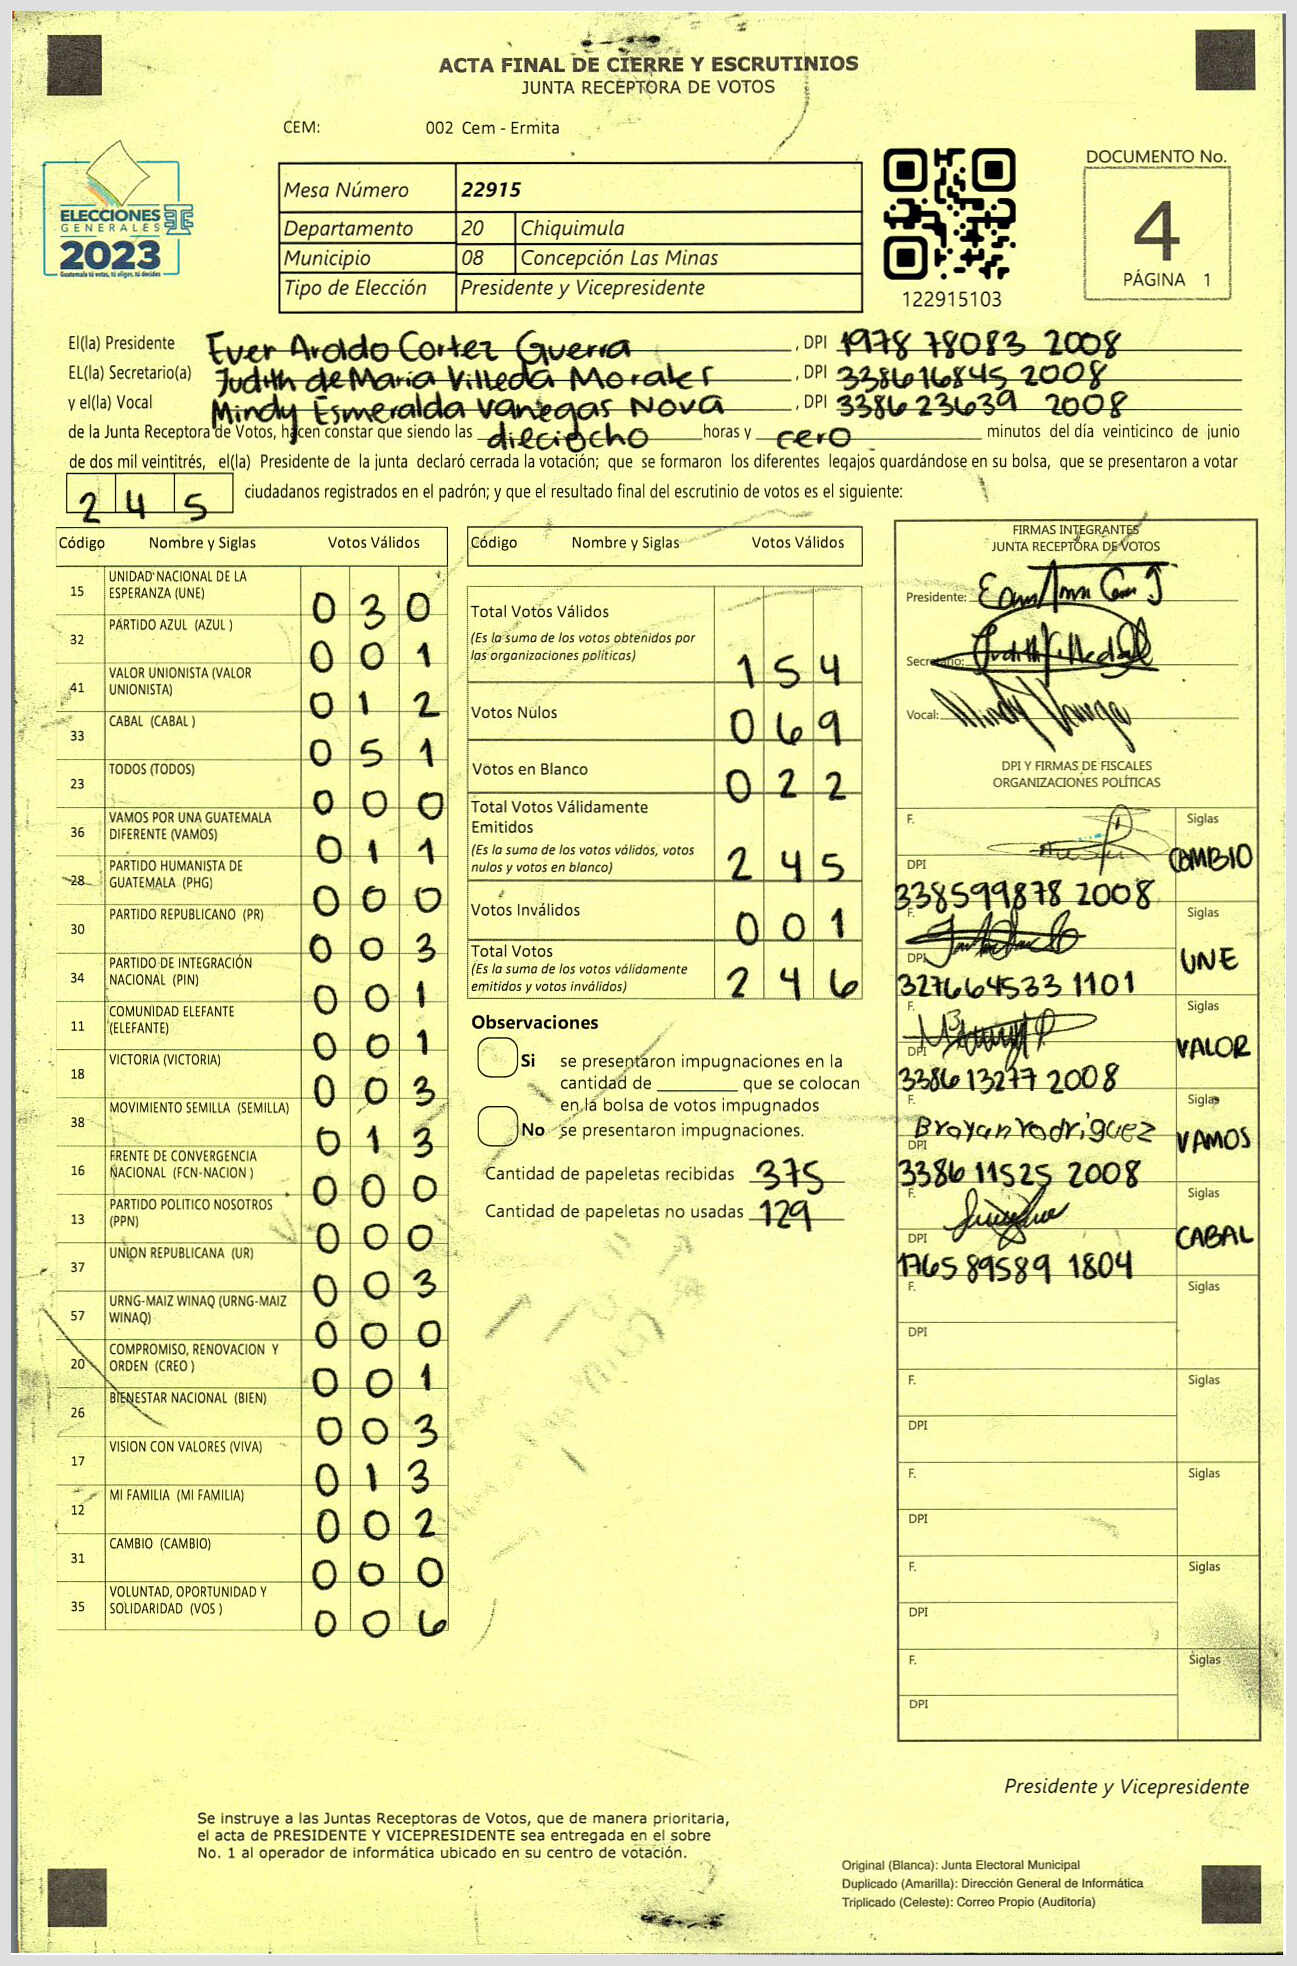 ACTA FINAL DE CIERRE Y ESCRUTINIOS
JUNTA RECEPTORA DE VOTOS
CEM: 002 Cem - Ermita
ELECCIONES
GENERALES
2023
Guatemala tú votas, tú eliges, tú decides
Mesa Número 22915
Departamento 20 Chiquimula
Municipio 08 Concepción Las Minas
Tipo de Elección Presidente y Vicepresidente
122915103
DOCUMENTO No.
4
PÁGINA 1
El(la) Presidente Ever Aroldo Cortez Guerra , DPI 1978 78083 2008
EL(la) Secretario(a) Judith de Maria Villeda Morales , DPI 338616845 2008
y el(la) Vocal Mindy Esmeralda Vanegas Nova , DPI 3386 23639 2008
de la Junta Receptora de Votos, hacen constar que siendo las dieciocho horas y cero minutos del día veinticinco de junio
de dos mil veintitrés, el(la) Presidente de la junta declaró cerrada la votación; que se formaron los diferentes legajos quardándose en su bolsa, que se presentaron a votar
245 ciudadanos registrados en el padrón; y que el resultado final del escrutinio de votos es el siguiente:
Código Nombre y Siglas Votos Válidos
15 UNIDAD NACIONAL DE LA
ESPERANZA (UNE) 030
32 PARTIDO AZUL (AZUL ) 001
41 VALOR UNIONISTA (VALOR
UNIONISTA) 012
33 CABAL (CABAL ) 051
23 TODOS (TODOS) 000
36 VAMOS POR UNA GUATEMALA
DIFERENTE (VAMOS) 011
28 PARTIDO HUMANISTA DE
GUATEMALA (PHG) 000
30 PARTIDO REPUBLICANO (PR) 003
34 PARTIDO DE INTEGRACIÓN
NACIONAL (PIN) 001
11 COMUNIDAD ELEFANTE
(ELEFANTE) 001
18 VICTORIA (VICTORIA) 003
38 MOVIMIENTO SEMILLA (SEMILLA) 013
16 FRENTE DE CONVERGENCIA
NACIONAL (FCN-NACION ) 000
13 PARTIDO POLITICO NOSOTROS
(PPN) 000
37 UNION REPUBLICANA (UR) 003
57 URNG-MAIZ WINAQ (URNG-MAIZ
WINAQ) 000
20 COMPROMISO, RENOVACION Y
ORDEN (CREO ) 001
26 BIENESTAR NACIONAL (BIEN) 003
17 VISION CON VALORES (VIVA) 013
12 MI FAMILIA (MI FAMILIA) 002
31 CAMBIO (CAMBIO) 000
35 VOLUNTAD, OPORTUNIDAD Y
SOLIDARIDAD (VOS ) 006
Código Nombre y Siglas Votos Válidos
Total Votos Válidos
(Es la suma de los votos obtenidos por
las organizaciones políticas) 154
Votos Nulos 069
Votos en Blanco 022
Total Votos Válidamente
Emitidos
(Es la suma de los votos válidos, votos
nulos y votos en blanco) 245
Votos Inválidos 001
Total Votos
(Es la suma de los votos válidamente
emitidos y votos inválidos) 246
Observaciones
Si se presentaron impugnaciones en la
cantidad de ________ que se colocan
en la bolsa de votos impugnados
No se presentaron impugnaciones.
Cantidad de papeletas recibidas 375
Cantidad de papeletas no usadas 129
FIRMAS INTEGRANTES
JUNTA RECEPTORA DE VOTOS
Presidente:
Secretario:
Vocal: Mindy Vanega
DPI Y FIRMAS DE FISCALES
ORGANIZACIONES POLÍTICAS
F. Siglas
DPI CAMBIO
338599878 2008
F. Siglas
DPI UNE
327664533 1101
F. Siglas
DPI VALOR
3386 13277 2008
F. Brayan rodriguez Siglas
DPI VAMOS
3386 11525 2008
F. Siglas
DPI CABAL
1765 89589 1804
F. Siglas
DPI
F. Siglas
DPI
F. Siglas
DPI
F. Siglas
DPI
F. Siglas
DPI
Presidente y Vicepresidente
Se instruye a las Juntas Receptoras de Votos, que de manera prioritaria,
el acta de PRESIDENTE Y VICEPRESIDENTE sea entregada en el sobre
No. 1 al operador de informática ubicado en su centro de votación.
Original (Blanca): Junta Electoral Municipal
Duplicado (Amarilla): Dirección General de Informática
Triplicado (Celeste): Correo Propio (Auditoría)